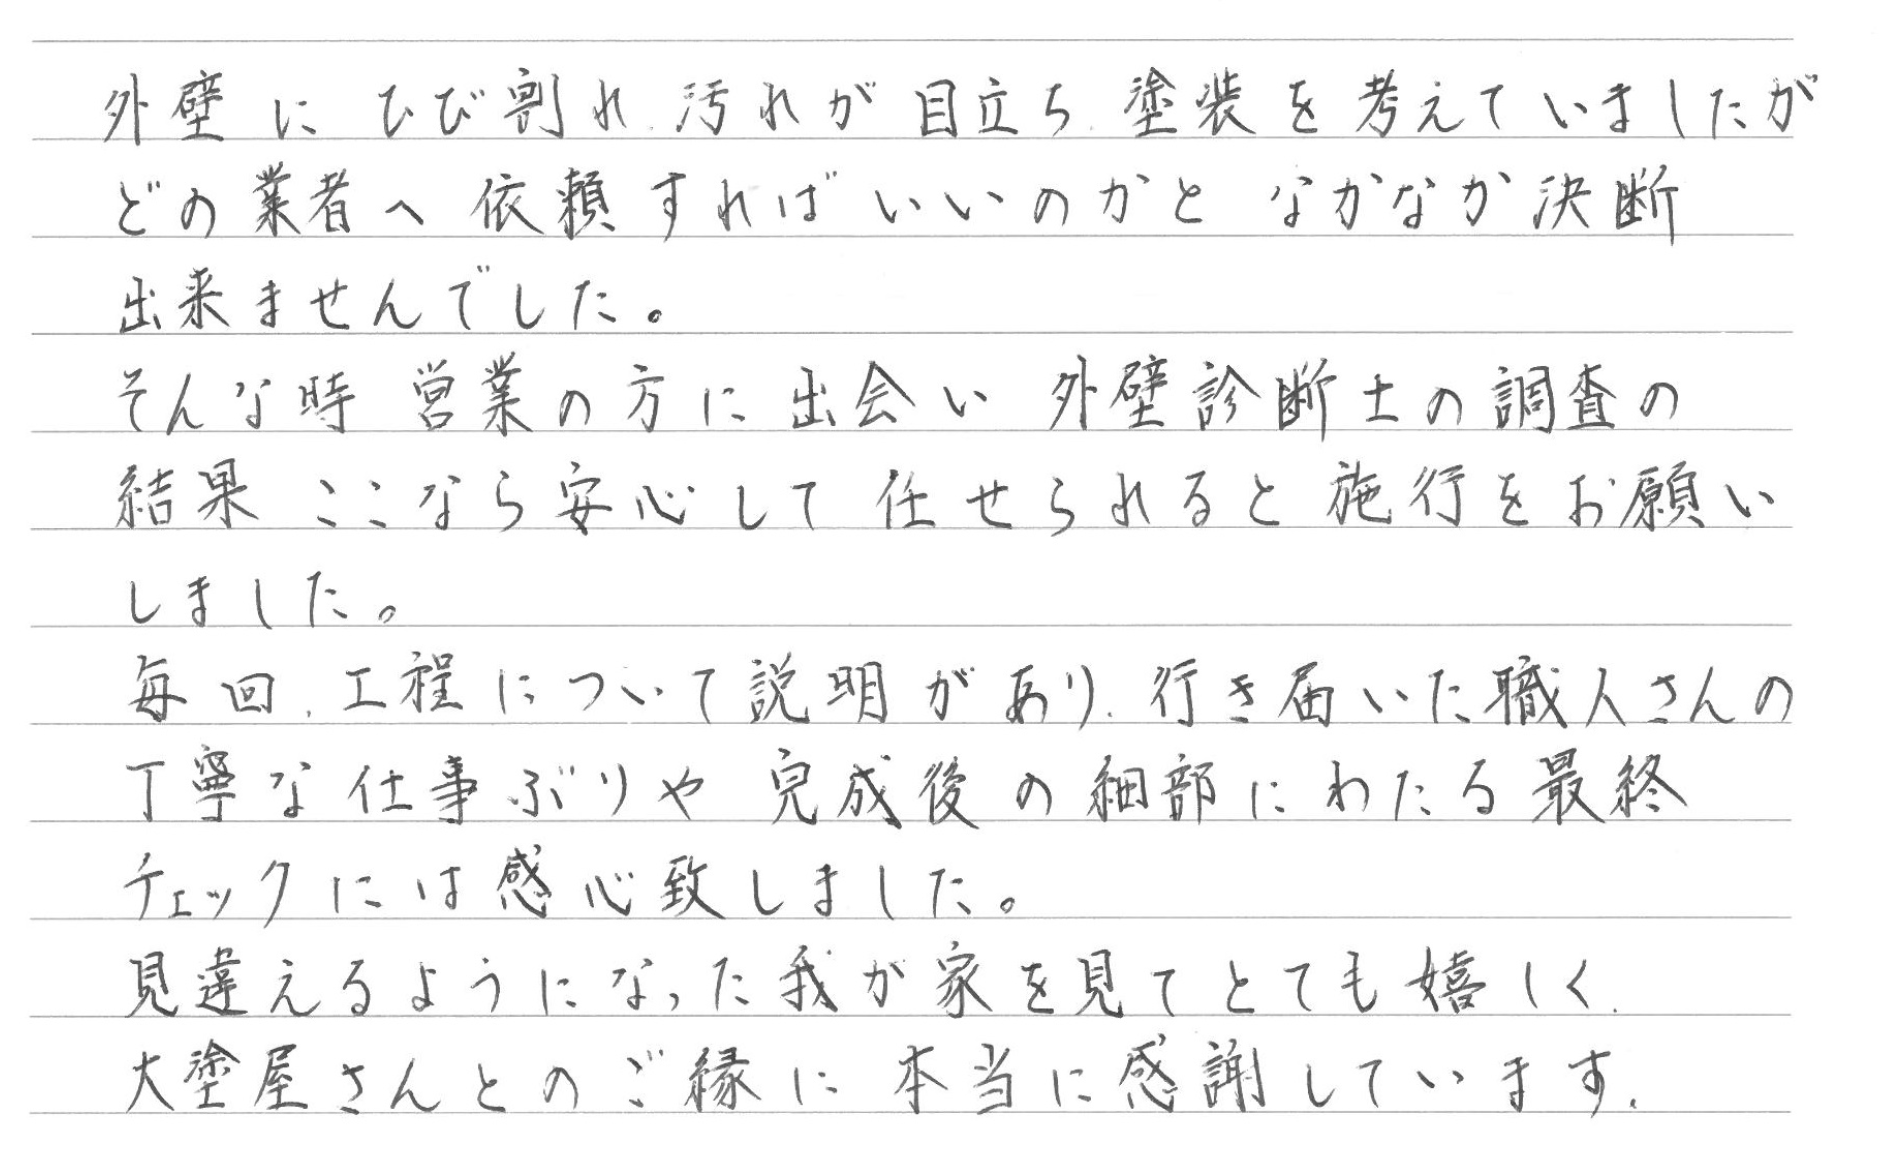 外壁にひび割れ、汚れが目立ち、塗装を考えていましたが
どの業者へ依頼すればいいのかと なかなか決断
出来ませんでした。
そんな時 営業の方に出会い 外壁診断士の調査の
結果 ここなら安心して 任せられると施行をお願い
しました。
毎回、工程について説明があり、行き届いた職人さんの
丁寧な仕事ぶりや 完成後の細部にわたる最終
チェックには感心致しました。
見違えるようになった我が家を見てとても嬉しく、
大塗屋さんとのご縁に 本当に感謝しています。